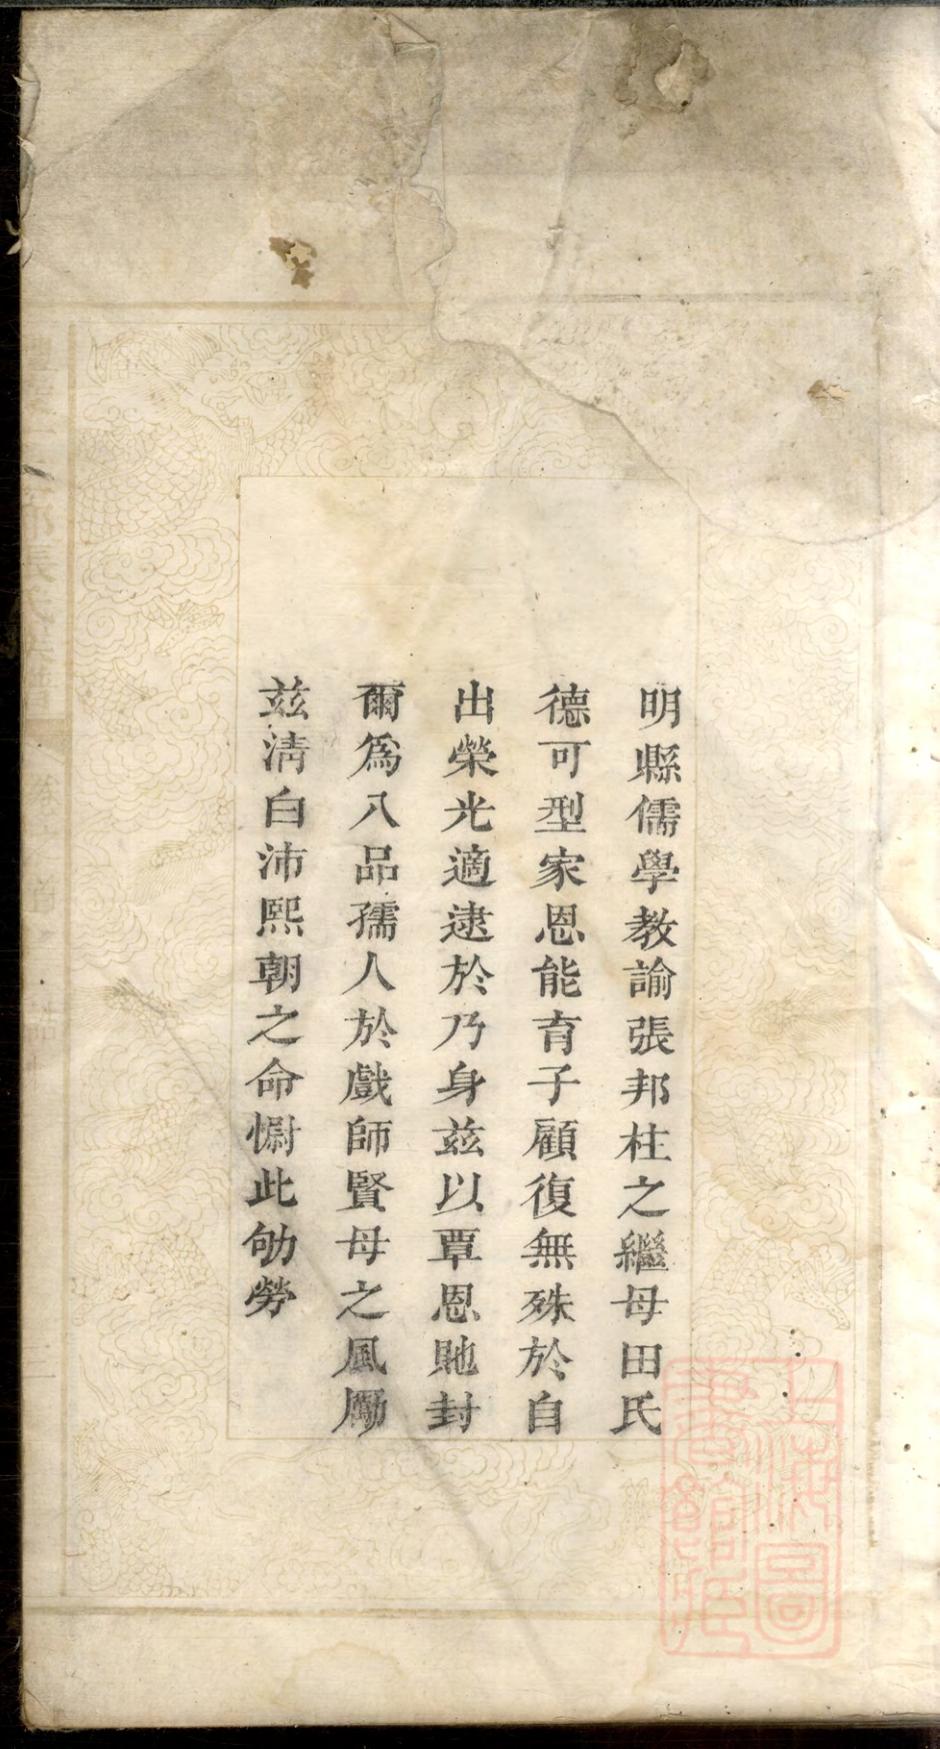 明縣儒學教諭張邦柱之繼母田氏
德可型家恩能育子顧復無殊於自
出榮光適逮於乃身茲以覃恩貤封
爾為八品孺人於戲師賢母之風勵
茲清白沛熙朝之命慰此劬勞
上海圖
書館藏